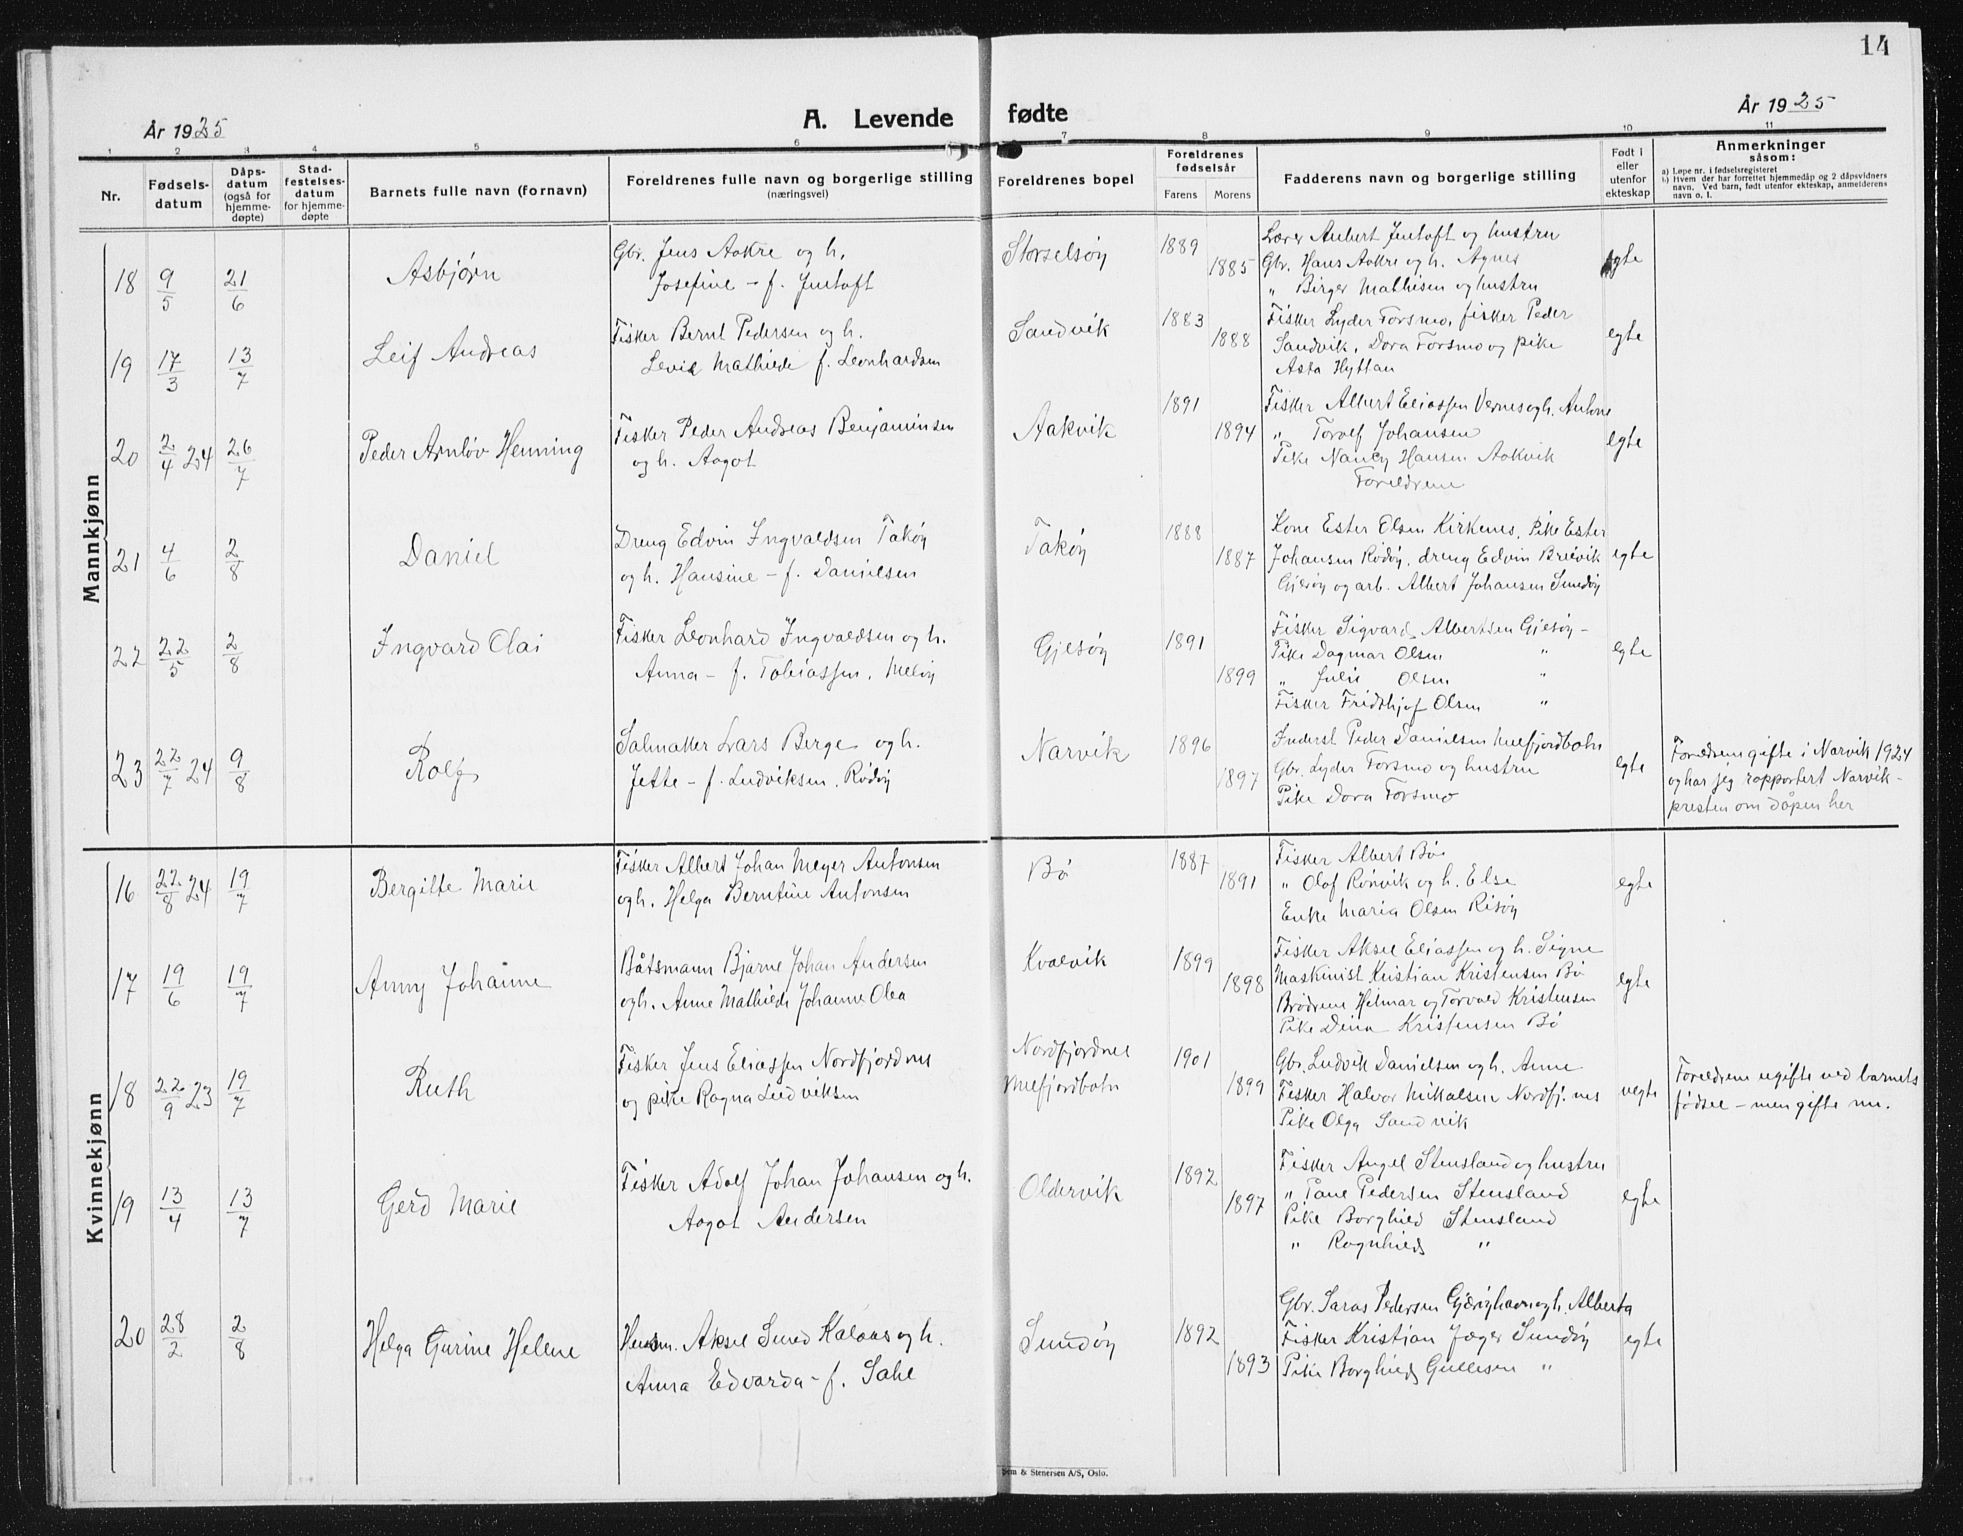 14
År 1925
A. Levende fødte
År 1925
1 2 3 4 5 6 7 8 9 10 11
Nr.
Fødsels-
datum
Dåps-
datum
(også for
hjemme-
døpte)
Stad-
festelses-
datum
for hjemme-
døpte
Barnets fulle navn (fornavn)
Foreldrenes fulle navn og borgerlige stilling
(næringsvei)
Foreldrenes bopel
Foreldrenes
fødselsår
Farens Morens
Fadderens navn og borgerlige stilling
Født i
eller
utenfor
ekteskap
Anmerkninger
såsom:
a) Løpe nr. i fødselsregisteret
b) Hvem der har forrettet hjemmedåp og 2 dåpsvidners
navn. Ved barn, født utenfor ekteskap, anmelderens
navn o. l.
Mannkjønn
18 9/5 21/6 Asbjørn
Gbr. Jens Aakre og h.
Josefine - f. Jentoft
Storselsöy 1889 1885
Lærer Aubert Jentoft og hustru
Gbr. Hans Aakre og h. Agnes
" Birger Mathisen og hustru
egte
19 17/3 13/7 Leif Andreas
Fisker Bernt Pedersen og h.
Mathilde f. Leonhardsen
Sandvik 1883 1888
Fisker Lyder Forsmo, fisker Peder
Sandvik, Dora Forsmo og pike
Asta Hyttan
egte
20 2/4 24 26/7 Peder Arnlöv Henning
Fisker Peder Andreas Benjaminsen
og h. Aagot
Aakvik 1891 1894
Fisker Albert Eliassen Vernes og h. Antone
" Torolf Johansen
Pike Nancy Hansen Aakvik
Foreldrene
egte
21 4/6 2/8 Daniel
Dreng Edvin Ingvaldsen Taköy
og h. Hansine - f. Danielsen
Taköy 1888 1887
Kone Ester Olsen Kirkenes, Pike Ester
Johansen Rödöy, dreng Edvin Breivik
Gjesöy og arb. Albert Johansen Sundöy
egte
22 22/5 2/8 Ingvard Olai
Fisker Leonhard Ingvaldsen og h.
Anna - f. Tobiassen, Melöy
Gjesöy 1891 1899
Fisker Sigvard Albertsen Gjesöy -
Pike Dagmar Olsen "
" Julie Olsen "
Fisker Fridthjof Olsen "
egte
23 22/7 24 9/8 Rolf
Salmaker Lars Berge og h.
Jette - f. Ludviksen, Rödöy
Narvik 1896 1897
Inderst Peder Danielsen Melfjordbotn
Gbr. Lyder Forsmo og hustru
Pike Dora Forsmo
egte
Foreldrene gifte i Narvik 1924
og har jeg rapportert Narvik-
presten om dåpen her
Kvinnekjønn
16 22/8 24 19/7 Bergitte Marie
Fisker Albert Johan Meyer Antonsen
og h. Helga Berntine Antonsen
Bö 1887 1891
Fisker Albert Bö
" Olaf Rönvik og h. Else
Enke Maria Olsen Risöy
egte
17 19/6 19/7 Anny Johanne
Båtsmann Bjarne Johan Andersen
og h. Anne Mathilde Johanne Olea
Kvalvik 1899 1898
Fisker Aksel Eliassen og h. Signe
Maskinist Kristian Kristensen Bö
Brödrene Hilmar og Torvald Kristensen
Pike Dina Kristensen Bö
egte
18 22/9 23 19/7 Ruth
Fisker Jens Eliassen Nordfjordnes
og pike Ragna Ludviksen
Nordfjordnes
Melfjordbotn
1901 1899
Gbr. Ludvik Danielsen og h. Anne
Fisker Halvor Mikalsen Nordfj.nes
Pike Olga Sandvik
uegte
Foreldrene ugifte ved barnets
födsel - men gifte nu.
19 13/4 13/7 Gerd Marie
Fisker Adolf Johan Johansen og h.
Aagot Andersen
Oldervik 1892 1897
Fisker Angel Stensland og hustru
" Pane Pedersen Stensland
Pike Borghild Stensland
" Ragnhild "
egte
20 28/2 2/8 Helga Gurine Helene
Aksel Sund Kalaas og h.
Anna Edvarda - f. Sahl
Sundöy 1892 1893
Gbr. Saras Pedersen og h. Alberta
Fisker Kristian Jæger Sundöy
Pike Borghild Gullesen "
egte
& Stenersen A/S, Oslo.